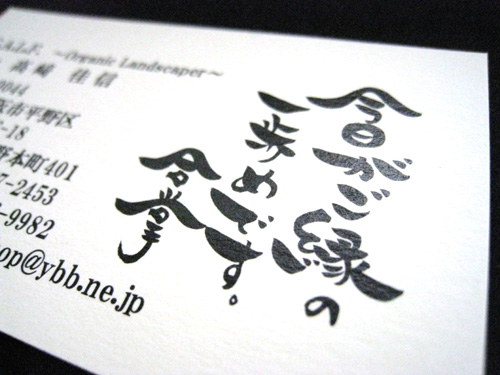 A.L.F. ～Organic Landscaper～
佳信
0044
阪市平野区
-18
野本町401
7-2453
3-9982
op@ybb.ne.jp
今日がご縁の
一歩めです。
合掌